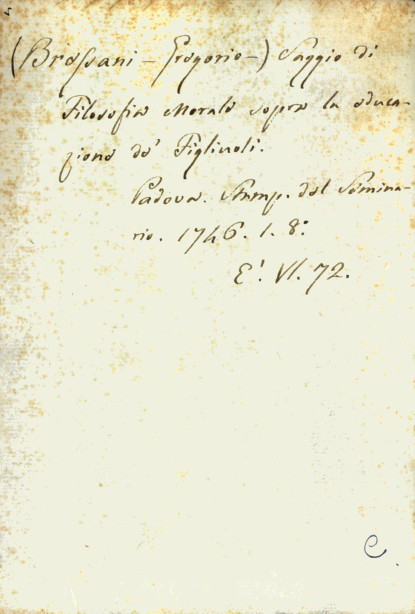 (Bressani - Gregorio -) Saggio di
Filosofia Morale sopra la educa-
zione de' Figliuoli.
Padova. Stamp. del Semina-
rio. 1746. 1. 8.°
E'. VI. 72.
C